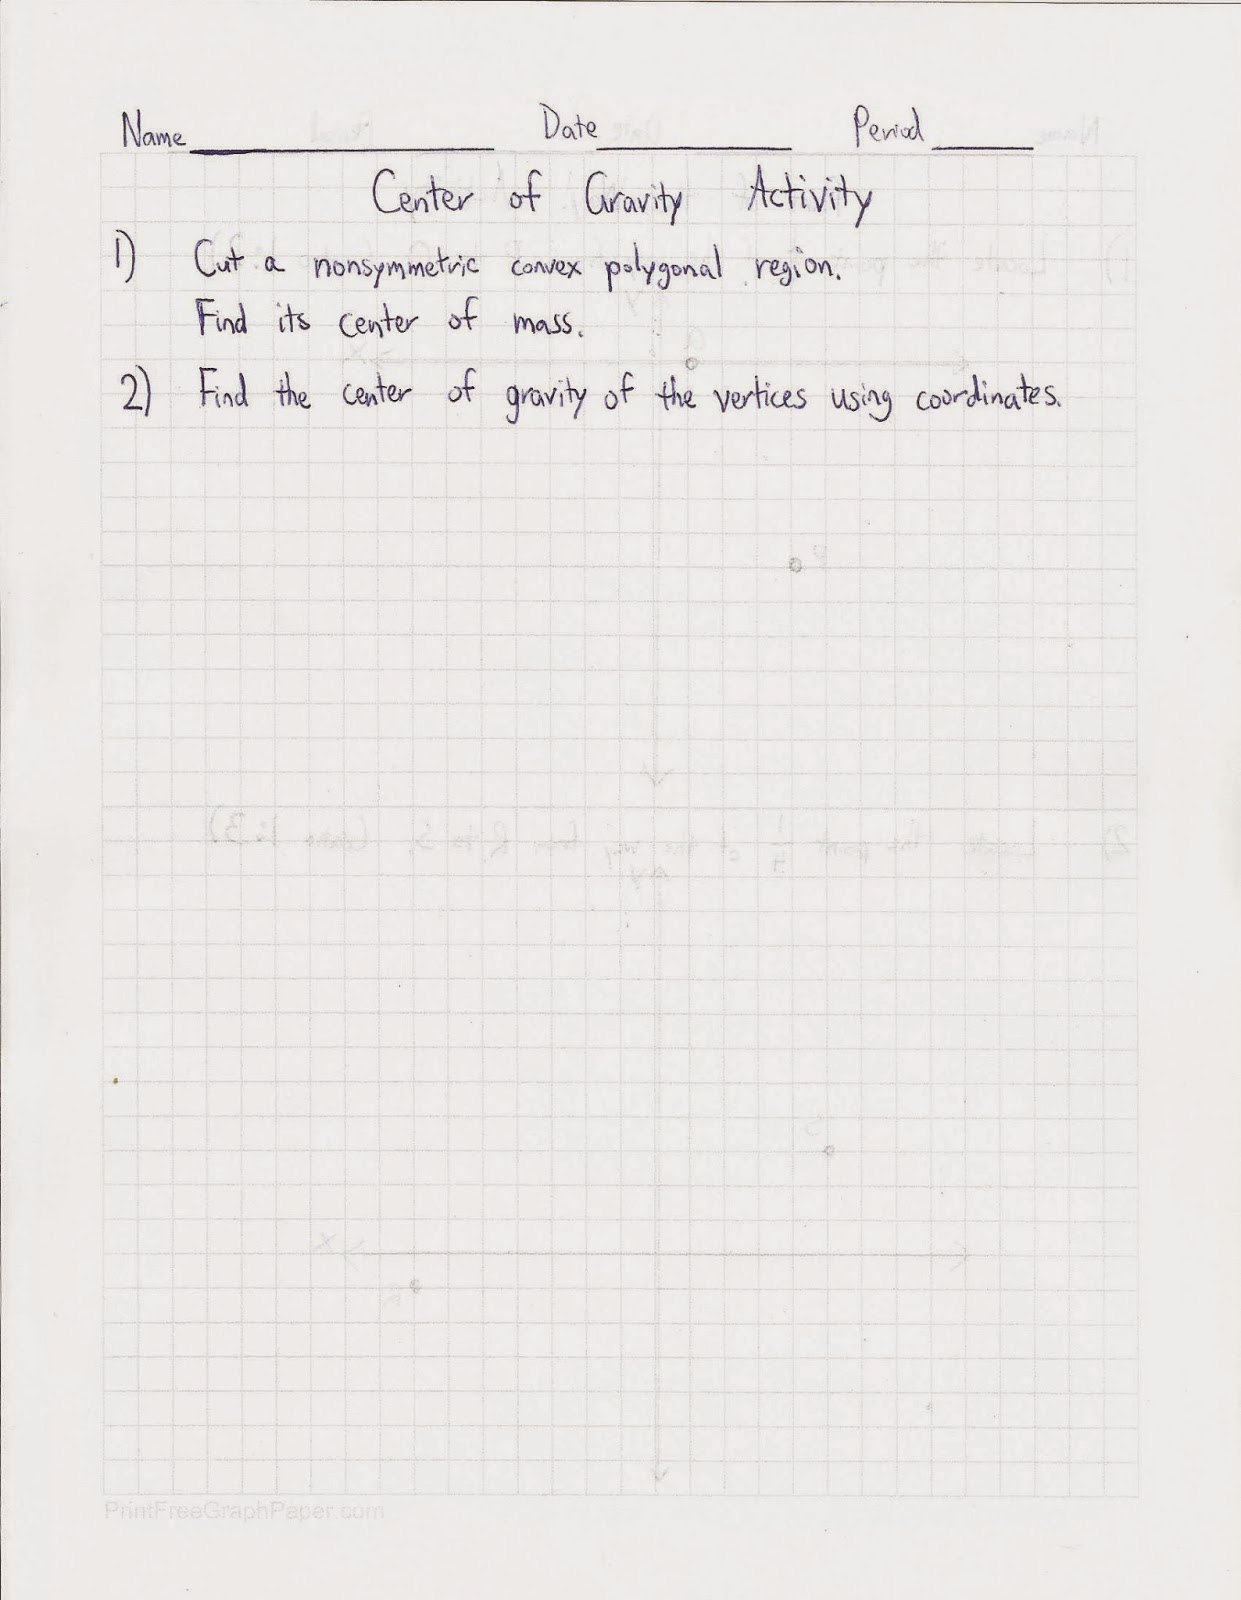 Name Date Period
Center of Gravity Activity
1) Cut a nonsymmetric convex polygonal region.
Find its center of mass.
2) Find the center of gravity of the vertices using coordinates.
P
2) Locate the point of the way from R to S.
S
X
R
PrintFreeGraphPaper.com